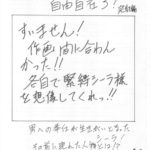 自由自在3!
すいません!
作画間に合わん
かった!!
各自で緊縛シーラ様
を想像してくれっ!!
男への奉仕が生きがいとなった
シーラ!
その前に現れた人物とは!?